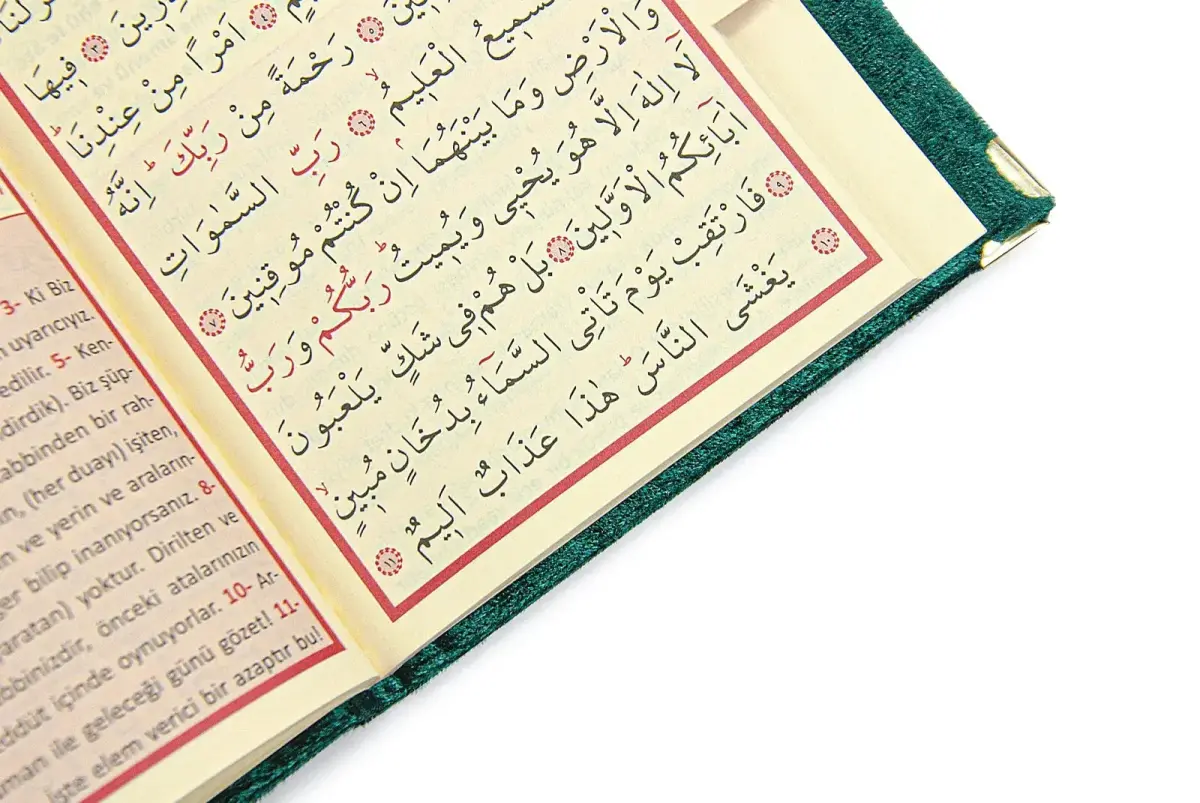 فِيهَا
٤ اَمْرًا مِنْ عِنْدِنَاۜ
٥ رَحْمَةً مِنْ رَبِّكَۜ اِنَّهُ
السَّمِيعُ الْعَلِيمُۙ ٦ رَبِّ السَّمٰوَاتِ
وَالْاَرْضِ وَمَا بَيْنَهُمَاۢ اِنْ كُنْتُمْ مُوقِنِينَ ٧
لَٓا اِلٰهَ اِلَّا هُوَ يُحْيِى وَيُمِيتُۜ رَبُّكُمْ وَرَبُّ
اٰبَٓائِكُمُ الْاَوَّلِينَ ٨ بَلْ هُمْ فِى شَكٍّ يَلْعَبُونَ
٩ فَارْتَقِبْ يَوْمَ تَاْتِى السَّمَٓاءُ بِدُخَانٍ مُبِينٍۙ
١٠ يَغْشَى النَّاسَۜ هٰذَا عَذَابٌ اَلِيمٌ ١١
3- Ki Biz
uyarıcıyız.
edilir. 5- Ken-
dirdik). Biz şüp-
abbinden bir rah-
(her duayı) işiten,
ve yerin ve araların-
bilip inanıyorsanız. 8-
yaratan) yoktur. Dirilten ve
abbinizdir, önceki atalarınızın
eddüt içinde oynuyorlar. 10- Ar-
uman ile geleceği günü gözet! 11-
işte elem verici bir azaptır bu!